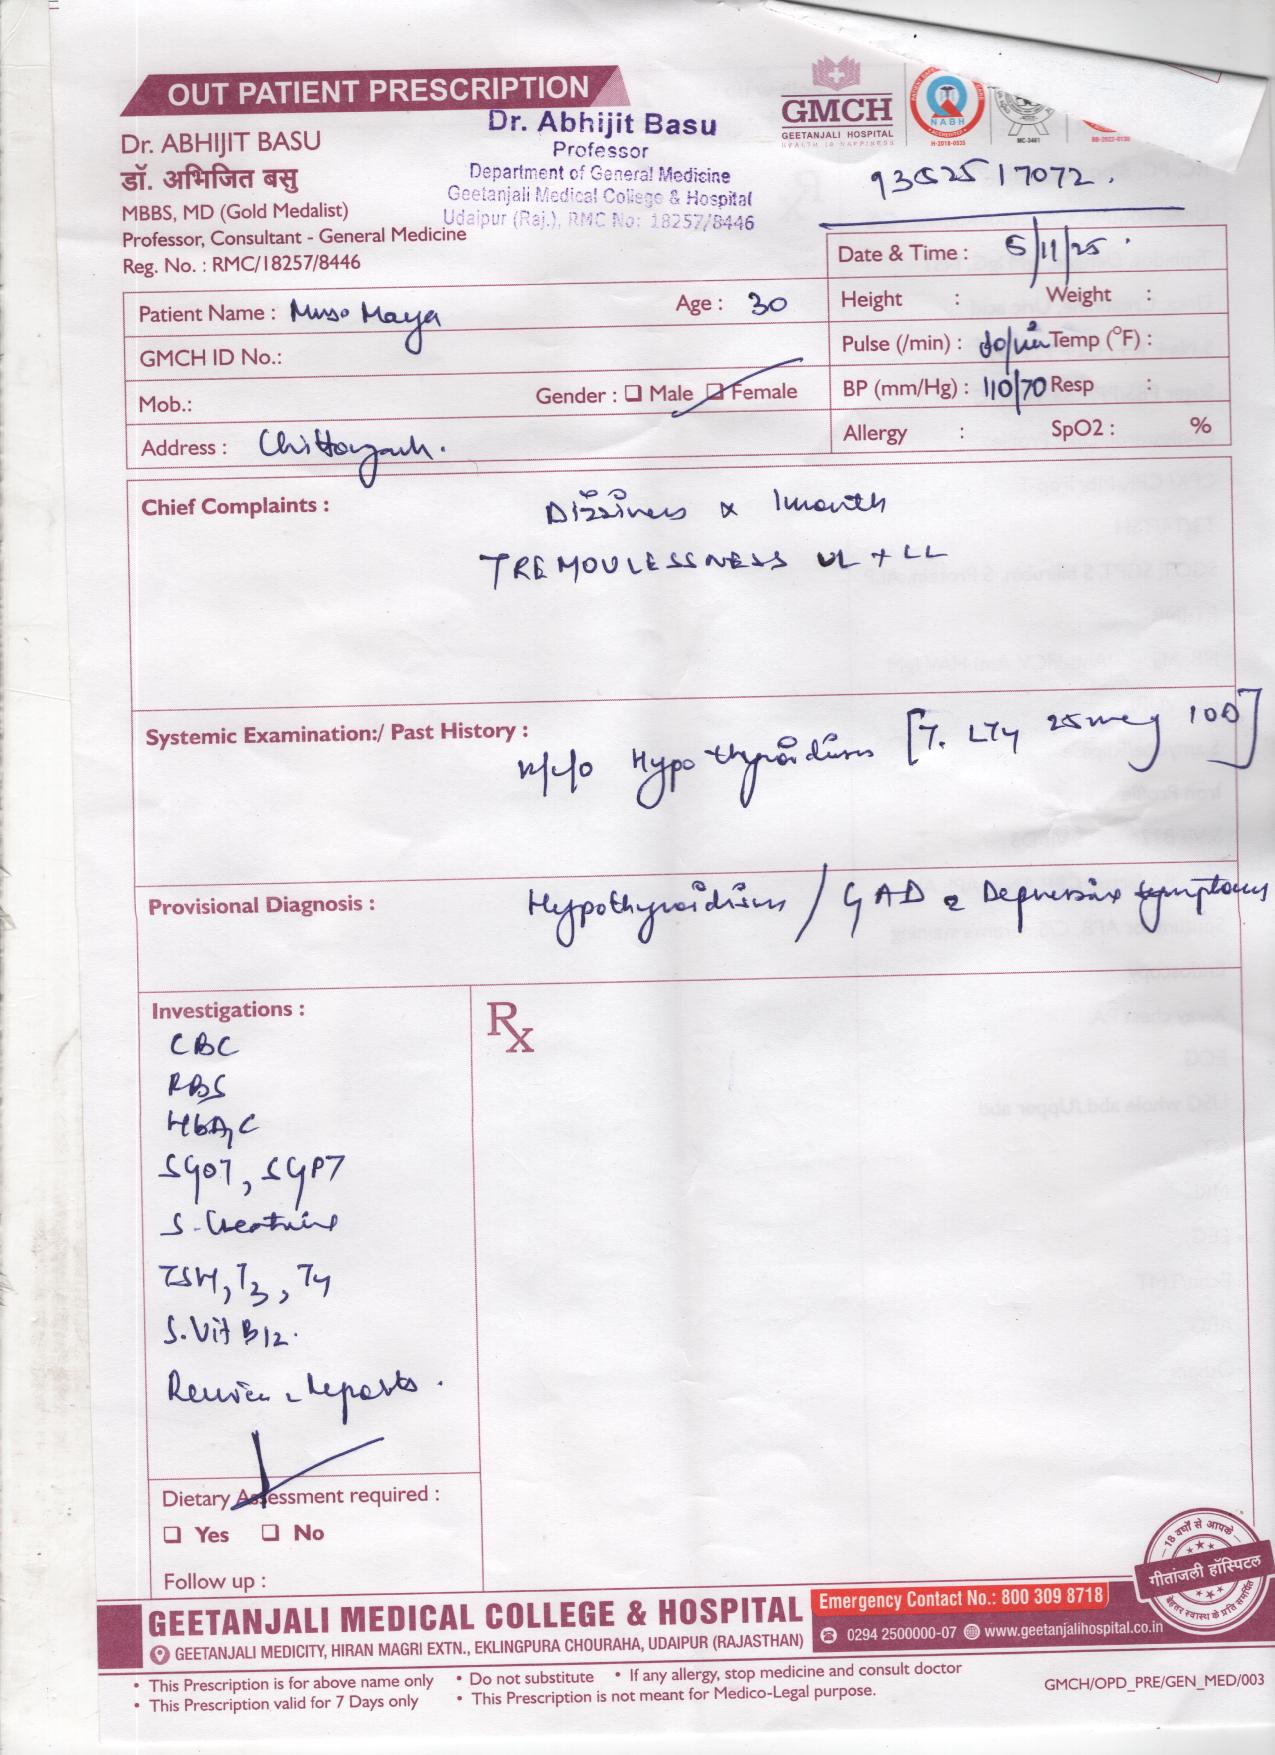 OUT PATIENT PRESCRIPTION
GMCH
GEETANJALI HOSPITAL
HEALTH IS HAPPINESS
NABH
H-2018-0535
MC-3461
Dr. ABHIJIT BASU
डॉ. अभिजित बसु
MBBS, MD (Gold Medalist)
Professor, Consultant - General Medicine
Reg. No. : RMC/18257/8446
Dr. Abhijit Basu
Professor
Department of General Medicine
Geetanjali Medical College & Hospital
Udaipur (Raj.), RMC No: 18257/8446
Date & Time : 5/11/25
Patient Name : Maya Age : 30
Height : Weight :
GMCH ID No.:
Pulse (/min) : Temp (°F) :
Mob.: Gender : ☐ Male ☐ Female
BP (mm/Hg) : 110/70 Resp :
Address :
Allergy : SpO2 : %
Chief Complaints : Dizziness x 1 month
TREMOULESSNESS UL + LL
Systemic Examination:/ Past History :
K/C/O Hypothyroidism [T. LT4 25 mcg 1OD]
Provisional Diagnosis : Hypothyroidism / GAD c Depressive symptoms
Investigations :
Rx
CBC
RBS
HbA1C
SGOT, SGPT
S. Creatinine
TSH, T3, T4
S. Vit B12.
Review c reports.
Dietary Assessment required :
☐ Yes ☐ No
Follow up :
18 वर्षों से आपके
गीतांजली हॉस्पिटल
बेहतर स्वास्थ्य के प्रति समर्पित
GEETANJALI MEDICAL COLLEGE & HOSPITAL
Emergency Contact No.: 800 309 8718
GEETANJALI MEDICITY, HIRAN MAGRI EXTN., EKLINGPURA CHOURAHA, UDAIPUR (RAJASTHAN)
0294 2500000-07 www.geetanjalihospital.co.in
• This Prescription is for above name only • Do not substitute • If any allergy, stop medicine and consult doctor
• This Prescription valid for 7 Days only • This Prescription is not meant for Medico-Legal purpose.
GMCH/OPD_PRE/GEN_MED/003